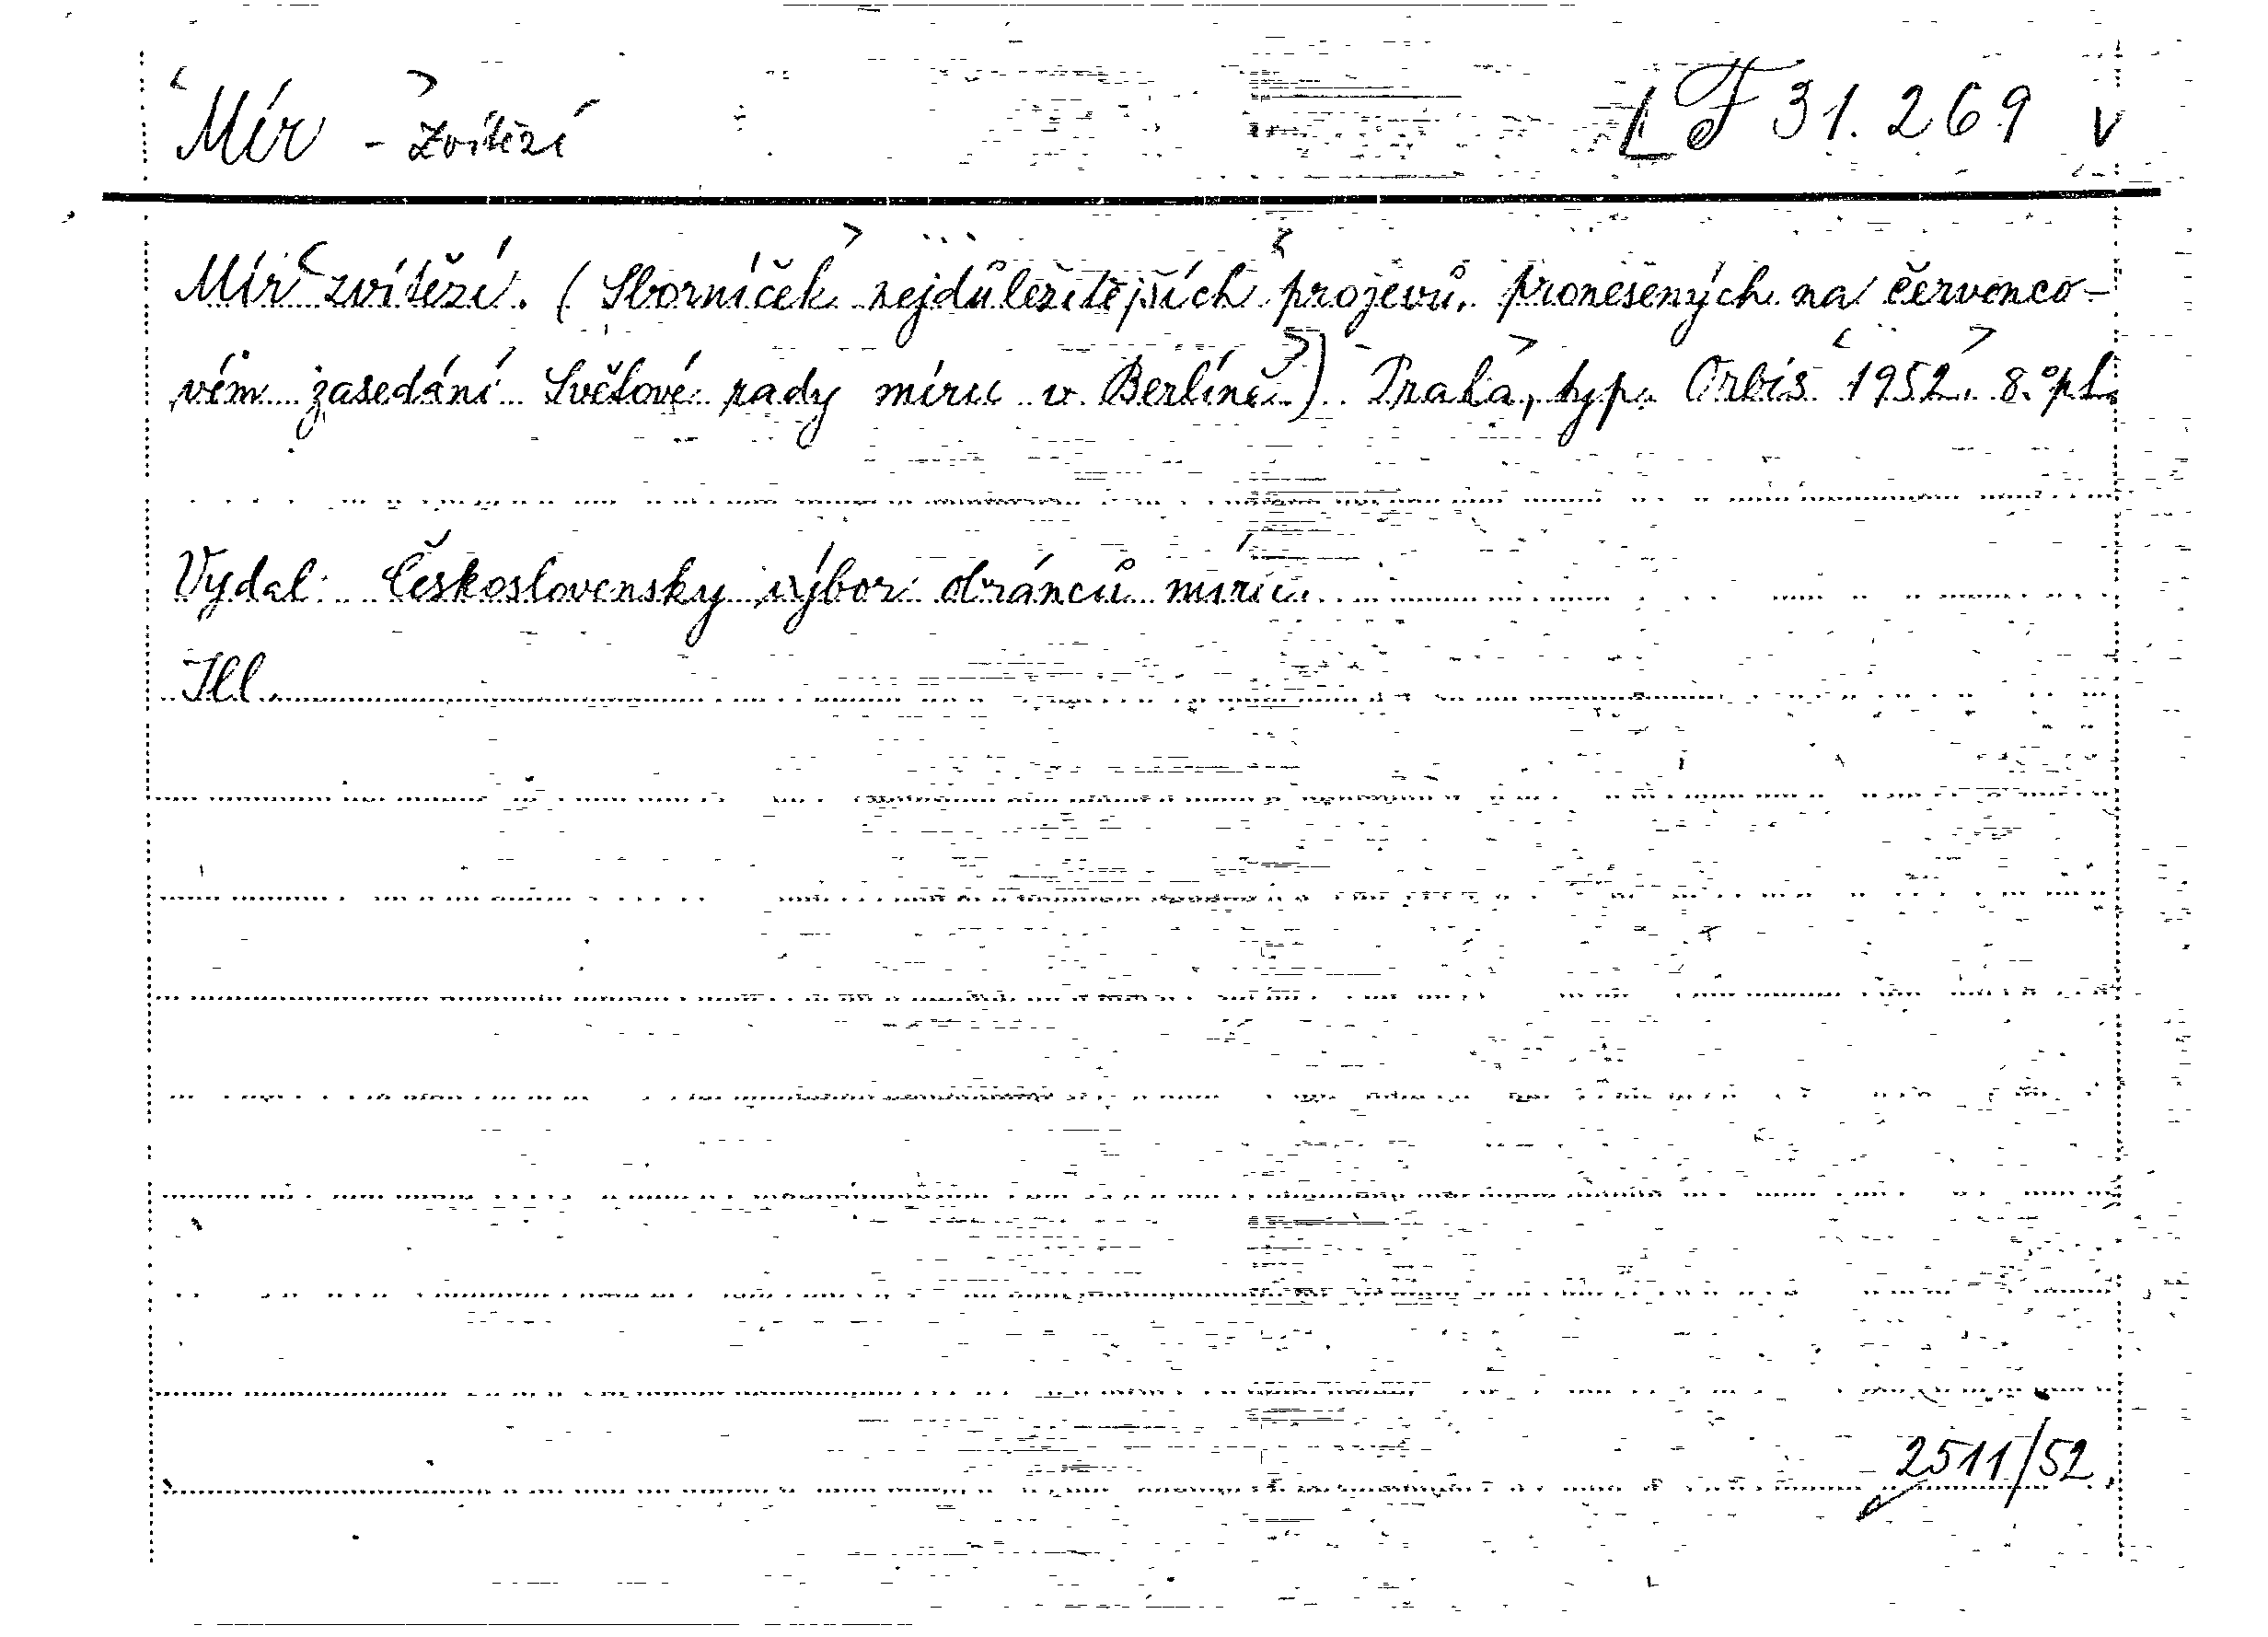 Mír - zvítězí LF 31.269 v
Mír zvítězí. (Sborníček nejdůležitějších projevů, pronesených na červenco-
vém zasedání Světové rady míru v Berlíně.) Praha, typ. Orbis 1952. 8.°
Vydal: Československý výbor obránců míru.
Ill.
2511/52.